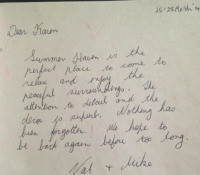 Dear Karen
Summer Haven is the
perfect place to come to
relax and enjoy the
peaceful surroundings. The
attention to detail and the
decor is superb. Nothing has
been forgotten! We hope to
be back again before too long.
Nat + Mike